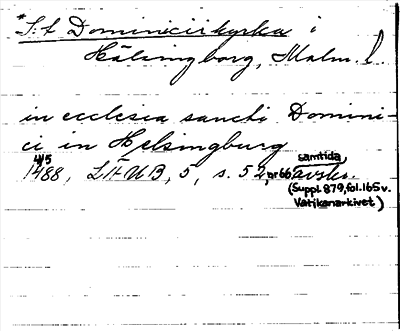 *S:t Dominicikyrka i
Hälsingborg, Malm. l.
in ecclesia sancti Domini-
ci in Helsingburg
4/5
1488, LÄUB, 5, s. 52, nr 66 samtida avskr.
(Suppl 879, fol. 165 v.
Vatikanarkivet)